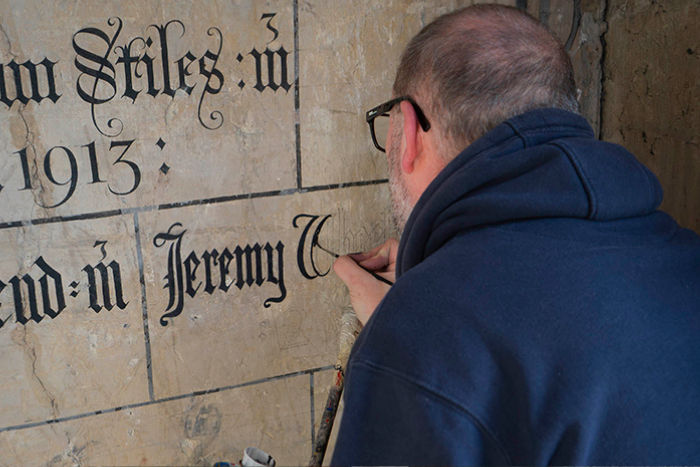 Stiles :m
1913 :
end:m Jeremy W